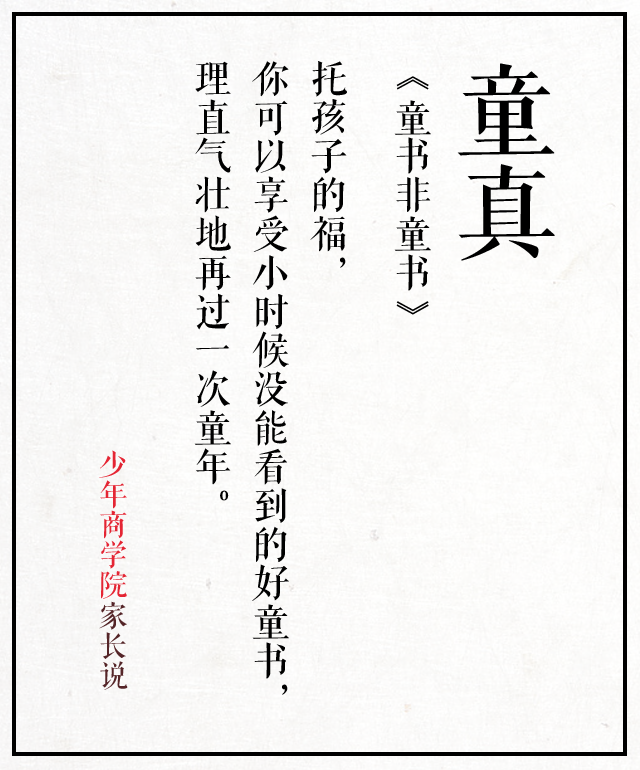 童真
《童书非童书》
托孩子的福，
你可以享受小时候没能看到的好童书，
理直气壮地再过一次童年。
少年商学院家长说